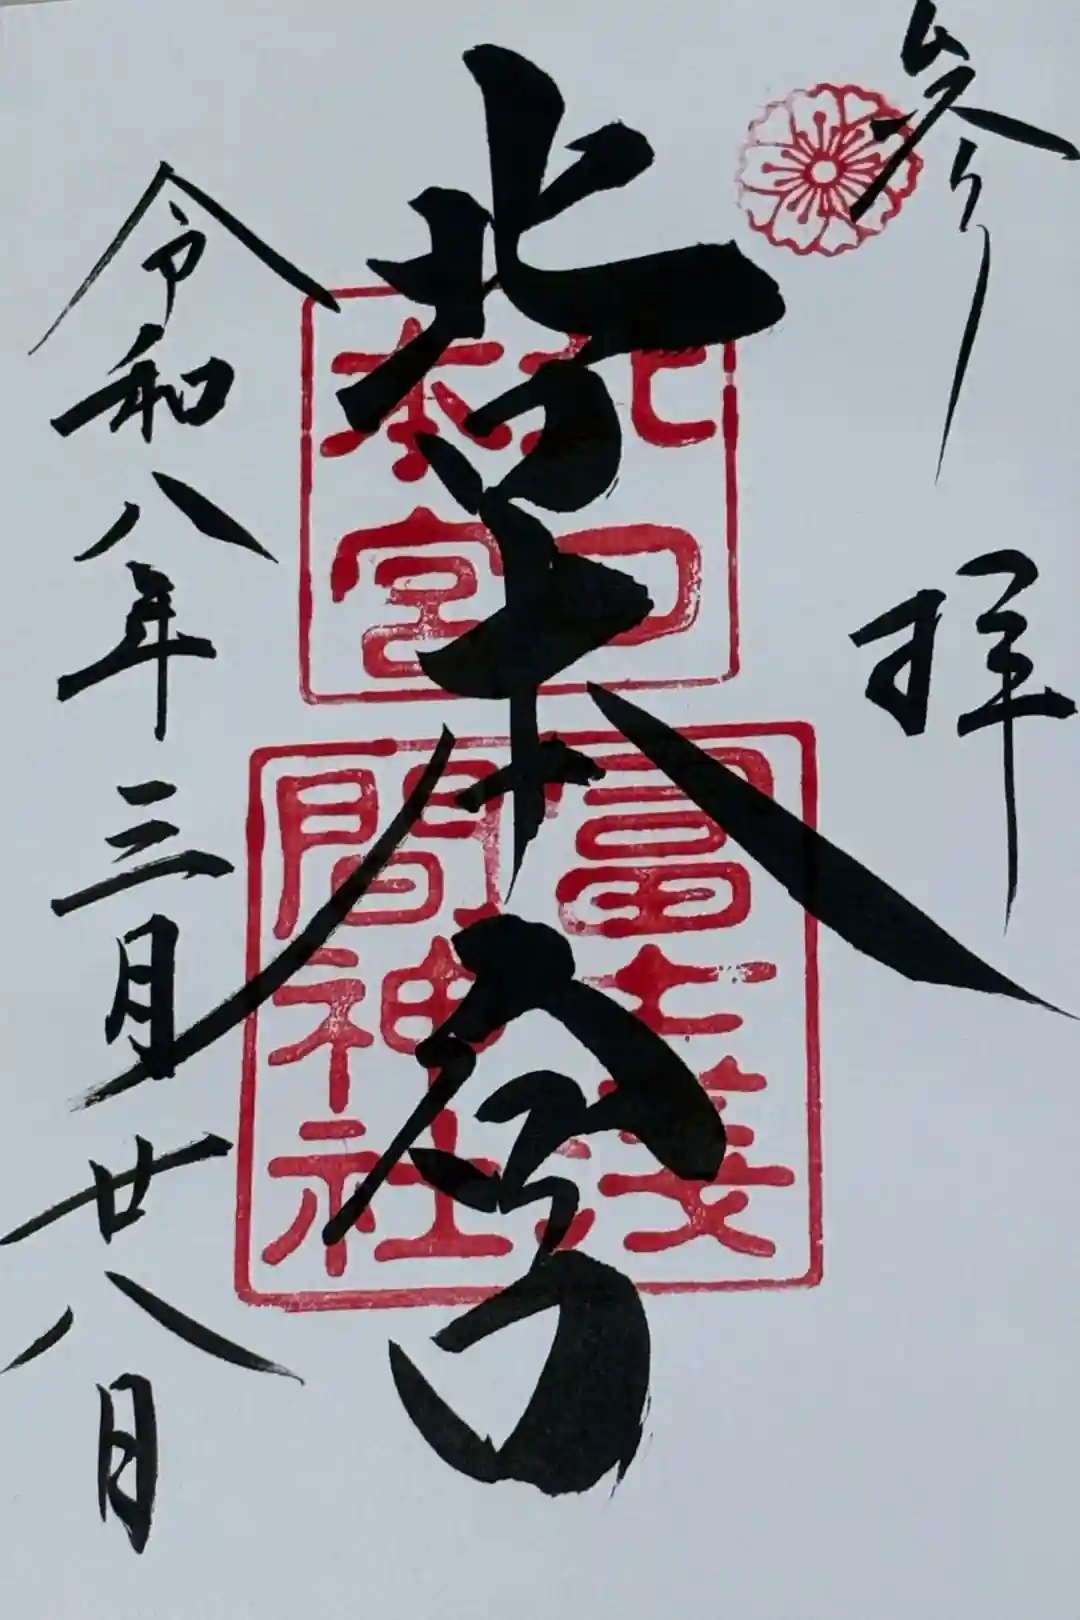 参拝
北口本宮
北口
本宮
富士淺
間神社
令和八年三月廿八日